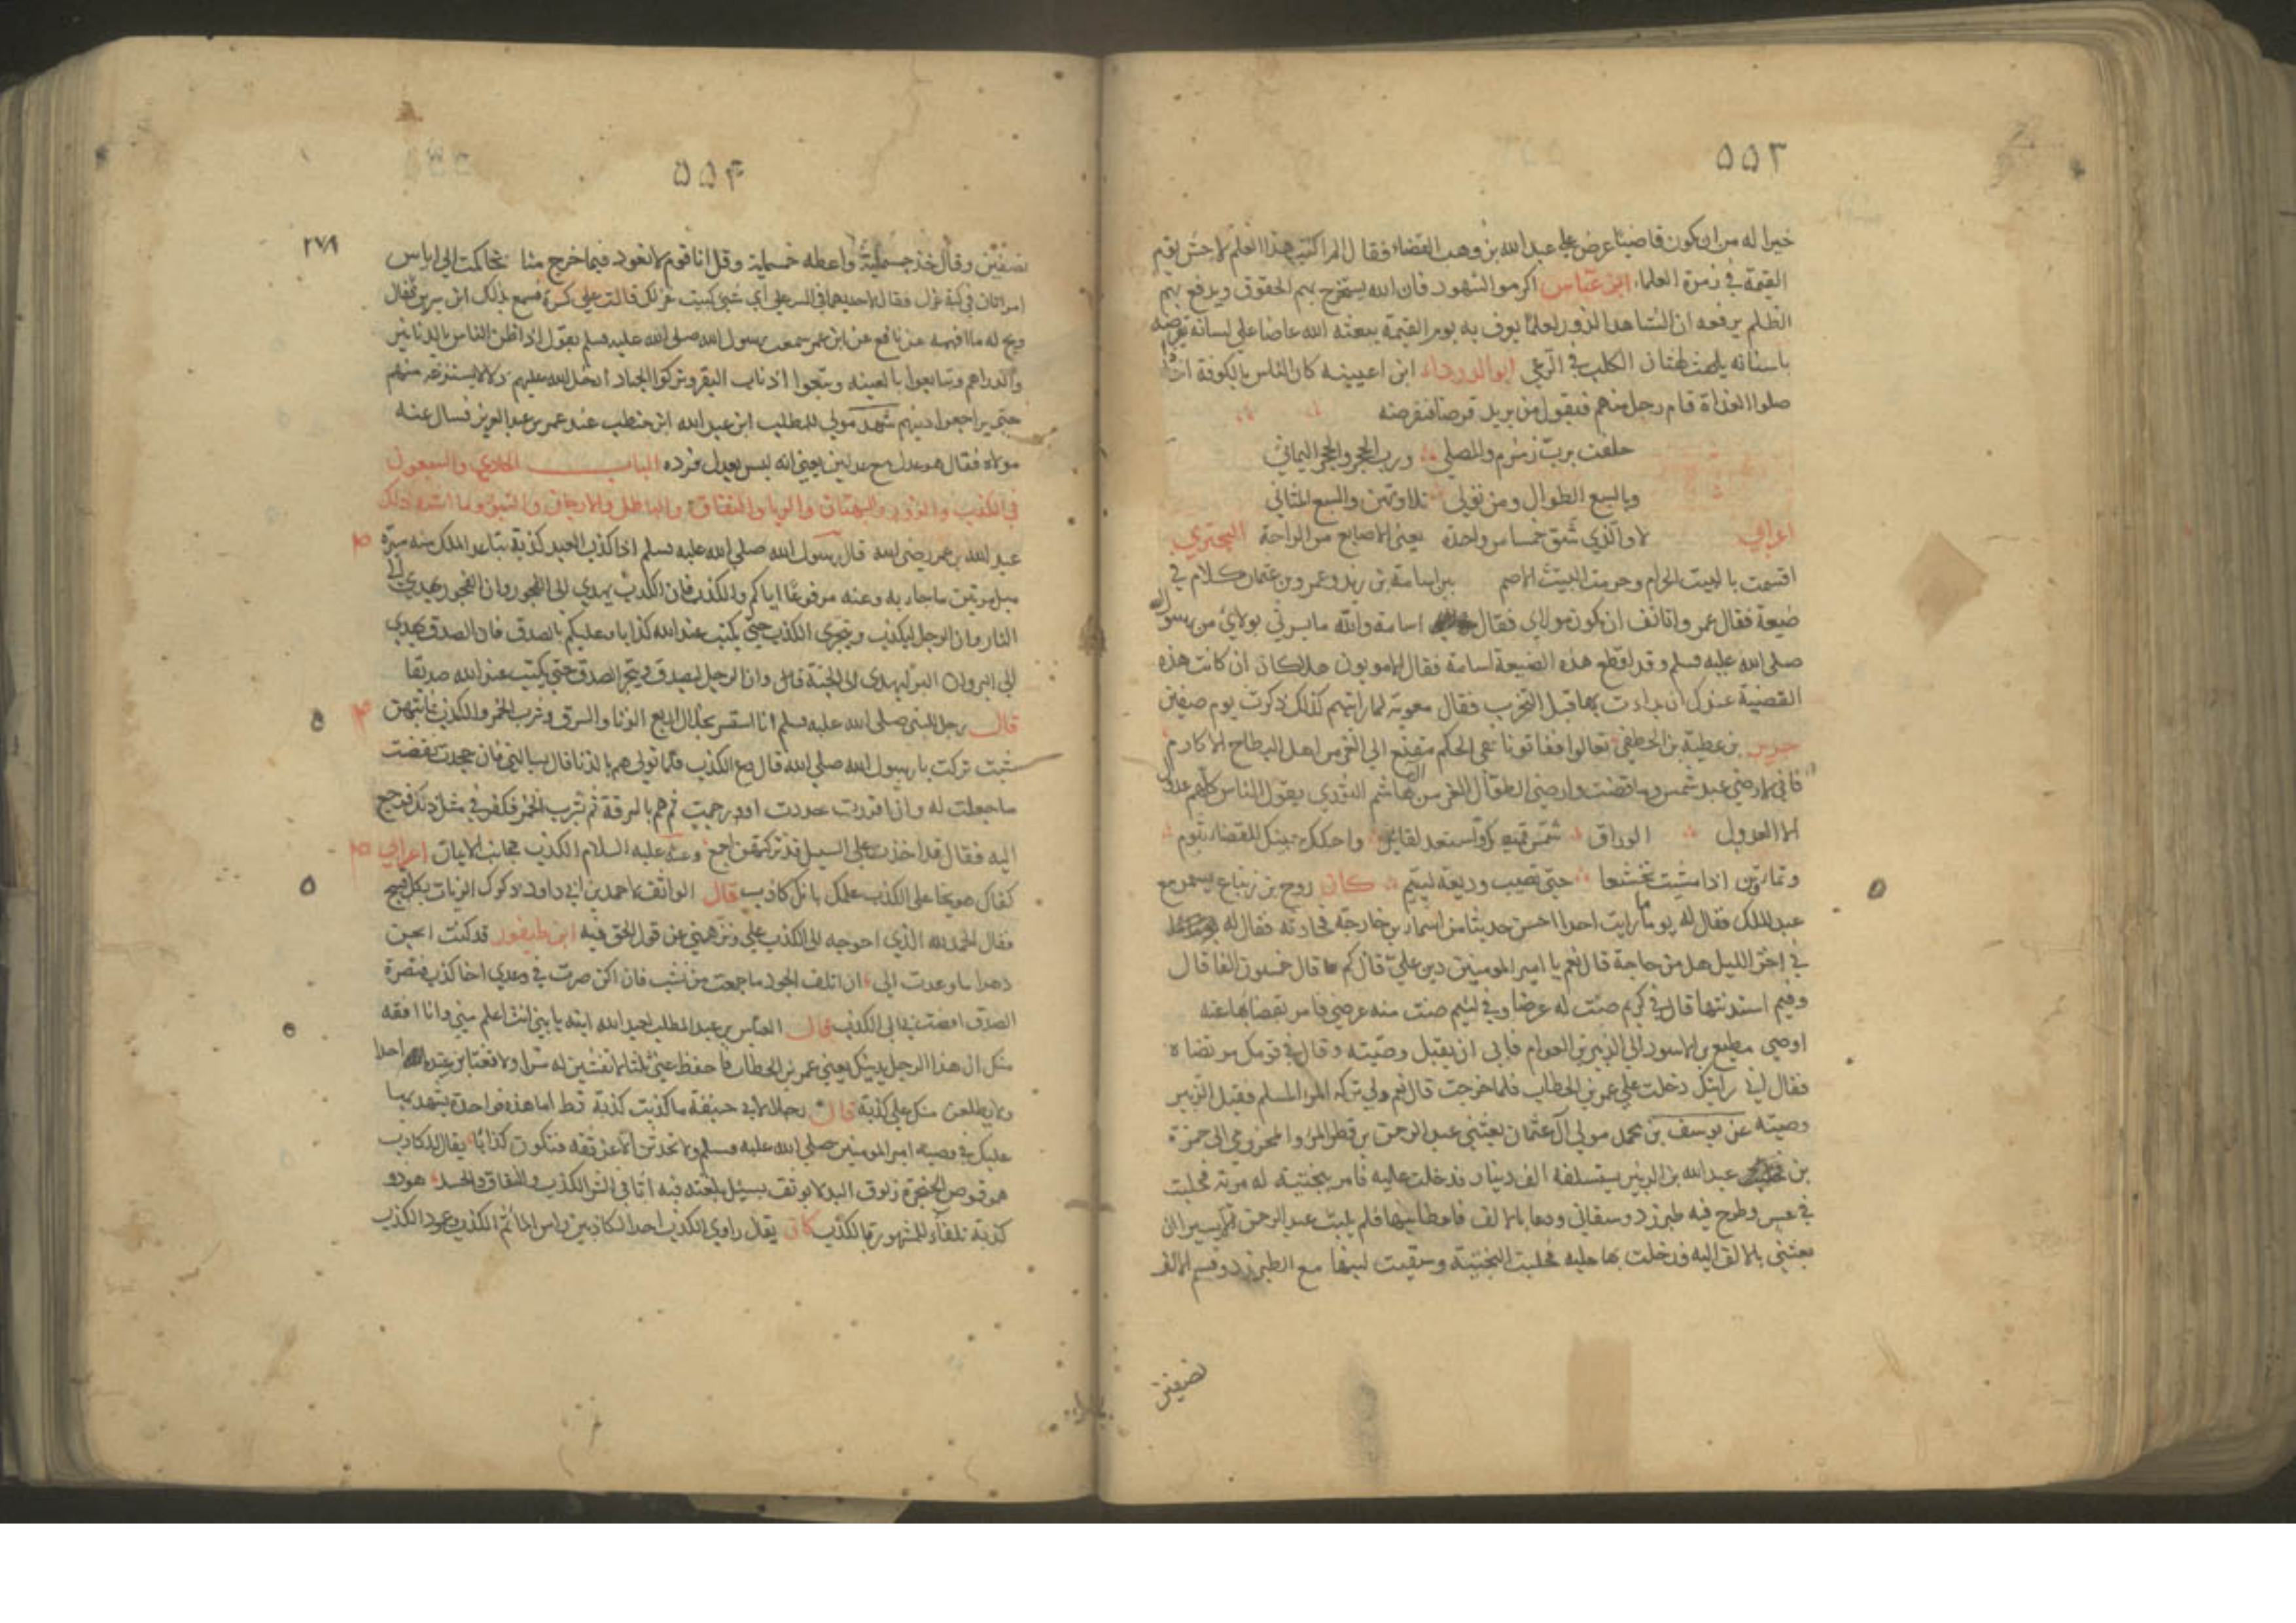 ٥٥٣
خيرا له من ان يكون قاضيا عرض على عبد الله بن وهب القضاء فقال لم اكتب هذا العلم لاحشر يوم
القيمة في زمرة العلماء ابن عباس اكرموا الشهود فان الله يستخرج بهم الحقوق ويدفع بهم
الظلم يرفعه ان الشاهد الزور يوم القيمة يبعثه الله عاضا على لسانه
باسنانه يلهث لهثان الكلب في ابو الدرداء ابن اعيينه كان الناس بالكوفة اذا
صلوا الغداة قام رجل منهم فيقول من يريد قرضا فنقرضه
حلفت برب زمزم والمصلى ورب الحجر والحجر اليماني
وبالسبع الطوال ومن تلاوتهن والسبع المثاني
اعرابي لا والذي شق خمسا من واحدة يعني الاصابع من الراحة البحتري
اقسمت بالبيت الحرام وحرمت البيت الاصم بين اسامة بن زيد وعمرو بن عثمان كلام في
ضيعة فقال عمرو اتانف ان تكون مولاي فقال اسامة والله ما يسرني بولائي من رسول الله
صلى الله عليه وسلم وقد اقطع هذه الضيعة اسامة فقال الامويون هلا كان ان كانت هذه
القضية عندك ان بدات بها قبل التحزب فقال معوية لما رايتهم كذلك ذكرت يوم صفين
جرير بن عطية بن الخطفى تعالوا ففاتونا ففي الحكم مقنع الى الغر من اهل البطاح الاكارم
فاني لارضي عبد شمس وما قضت وارضي الطوال الغر من ال هاشم الثوري يقول الناس كلهم عدول
الا العدول الوراق شمر قميصك واستعد لقائل واحكك جبينك للقضاء بثوم
اذا مشيت تخشعا حتى تصيب وديعة ليتيم كان روح بن زنباع يسمر مع
عبد الملك فقال له يوما ما رايت احدا احسن حديثا من اسماء بن خارجة فحادثه فقال له
في اخر الليل هل من حاجة قال نعم يا امير المومنين دين علي قال كم هو قال خمسون الفا قال
وفيم استدنتها قال في كريم صنت له عرضا وفي لئيم صنت منه عرضي فامر بقضائها عنه
اوصى مطيع بن الاسود الى الزبير بن العوام فابى ان يقبل وصيته وقال في قومك من ترضاه
فقال اني رايتك دخلت على عمر بن الخطاب فلما خرجت قال نعم ولي تركة المرء المسلم فقبل الزبير
وصيته عن يوسف بن محمد مولى آل عثمان بعثني عبد الرحمن بن قطن المخزومي الى حمزة
بن عبد الله بن الزبير يستسلفه الف دينار فدخلت عليه فامر ببختية له مرتة فحلبت
في عس وطرح فيه طبرزد وسقاني ودعا بالالف فاعطانيها فلم يلبث عبد الرحمن الا يسيرا ان
بعثني بالالف اليه فدخلت بها عليه فحلبت البختية وسقيت لبنها مع الطبرزد وقسم الالف
نصفين
٥٥٤
٢٧٩
نصفين وقال خذ خمسماية واعطه خمسماية وقل انا قوم لا نعود فيما خرج منا تحاكمت الى اياس
امراتان في كبة غزل فقال لاحديهما في السر على اي شيء كببت غزلك قالت على كسرة فسمع بذلك ابن سيرين فقال
ويح له ما افهمه عن نافع عن ابن عمر سمعت رسول الله صلى الله عليه وسلم يقول اذا ظن الناس بالدنانير
والدراهم وتبايعوا بالعينة وتبعوا اذناب البقر وتركوا الجهاد ادخل الله عليهم ذلا لا ينتزعه منهم
حتى يراجعوا دينهم شهد مولى للمطلب ابن عبد الله ابن حنطب عند عمر بن عبد العزيز فسال عنه
مولاه فقال هو عدل مع عدلين يعني انه ليس بعدل فرده الباب الحادي والسبعون
في الكذب والزور والبهتان والريا والنفاق والباطل والارجاف وما اشبه ذلك
عبد الله بن عمر رضي الله قال رسول الله صلى الله عليه وسلم اذا كذب العبد كذبة تباعد الملك منه مسيرة
ميل من نتن ما جاء به وعنه مرفوعا اياكم والكذب فان الكذب يهدي الى الفجور وان الفجور يهدي الى
النار وان الرجل ليكذب ويتحرى الكذب حتى يكتب عند الله كذابا وعليكم بالصدق فان الصدق يهدي
الى البر وان البر ليهدي الى الجنة وان الرجل ليصدق ويتحر الصدق حتى يكتب عند الله صديقا
قال رجل للنبي صلى الله عليه وسلم انا استسر بخلال اربع الزنا والسرق وشرب الخمر والكذب فايتهن
شئت تركت يا رسول الله صلى الله قال دع الكذب فلما تولى هم بالزنا فقال يسالني فان جحدت نقضت
ما جعلت له وان اقررت حددت او رجمت ثم هم بالسرقة ثم بشرب الخمر فكفر في مثل ذلك فرجع
اليه فقال قد اخذت على السبيل قد تركتهن اجمع وعنه عليه السلام الكذب مجانب الايمان اعرابي
كفاك موبخا على الكذب علمك بانك كاذب قال الواثق لاحمد بن ابي داود ذكرك الزيات بكل قبيح
فقال الحمد لله الذي احوجه الى الكذب علي ونزهني عن قول الحق فيه ابن طيفور قد كنت انجز
دهرا ما وعدت الى ان اتلف الجود ما جمعت من نشب فان اكن صرت في وعدي اخا كذب فنصرة
الصدق افضت بي الى الكذب قال العباس بن عبد المطلب لعبد الله ابنه يا بني انت اعلم مني وانا افقه
منك ان هذا الرجل يدنيك يعني عمر بن الخطاب فاحفظ عني ثلثا لا تفشين له سرا ولا تغتابن عنده احدا
ولا يطلعن منك على كذبة قال رجل لابي حنيفة ما كذبت كذبة قط اما هذه فواحدة يشهد بها
عليك في وصية امير المومنين صلى الله عليه وسلم ولا تحدث الا عن ثقة فتكون كذابا يقال للكاذب
هو قموص الحنجرة زلوق اللبد لا يوثق بسيل تلعته فيه اثافي الشر الكذب والنفاق والحسد هو ذو
كذبة تلقاء للمشهور بالكذب كان يقال راوي الكذب احد الكاذبين راس الماثم الكذب وعمود الكذب